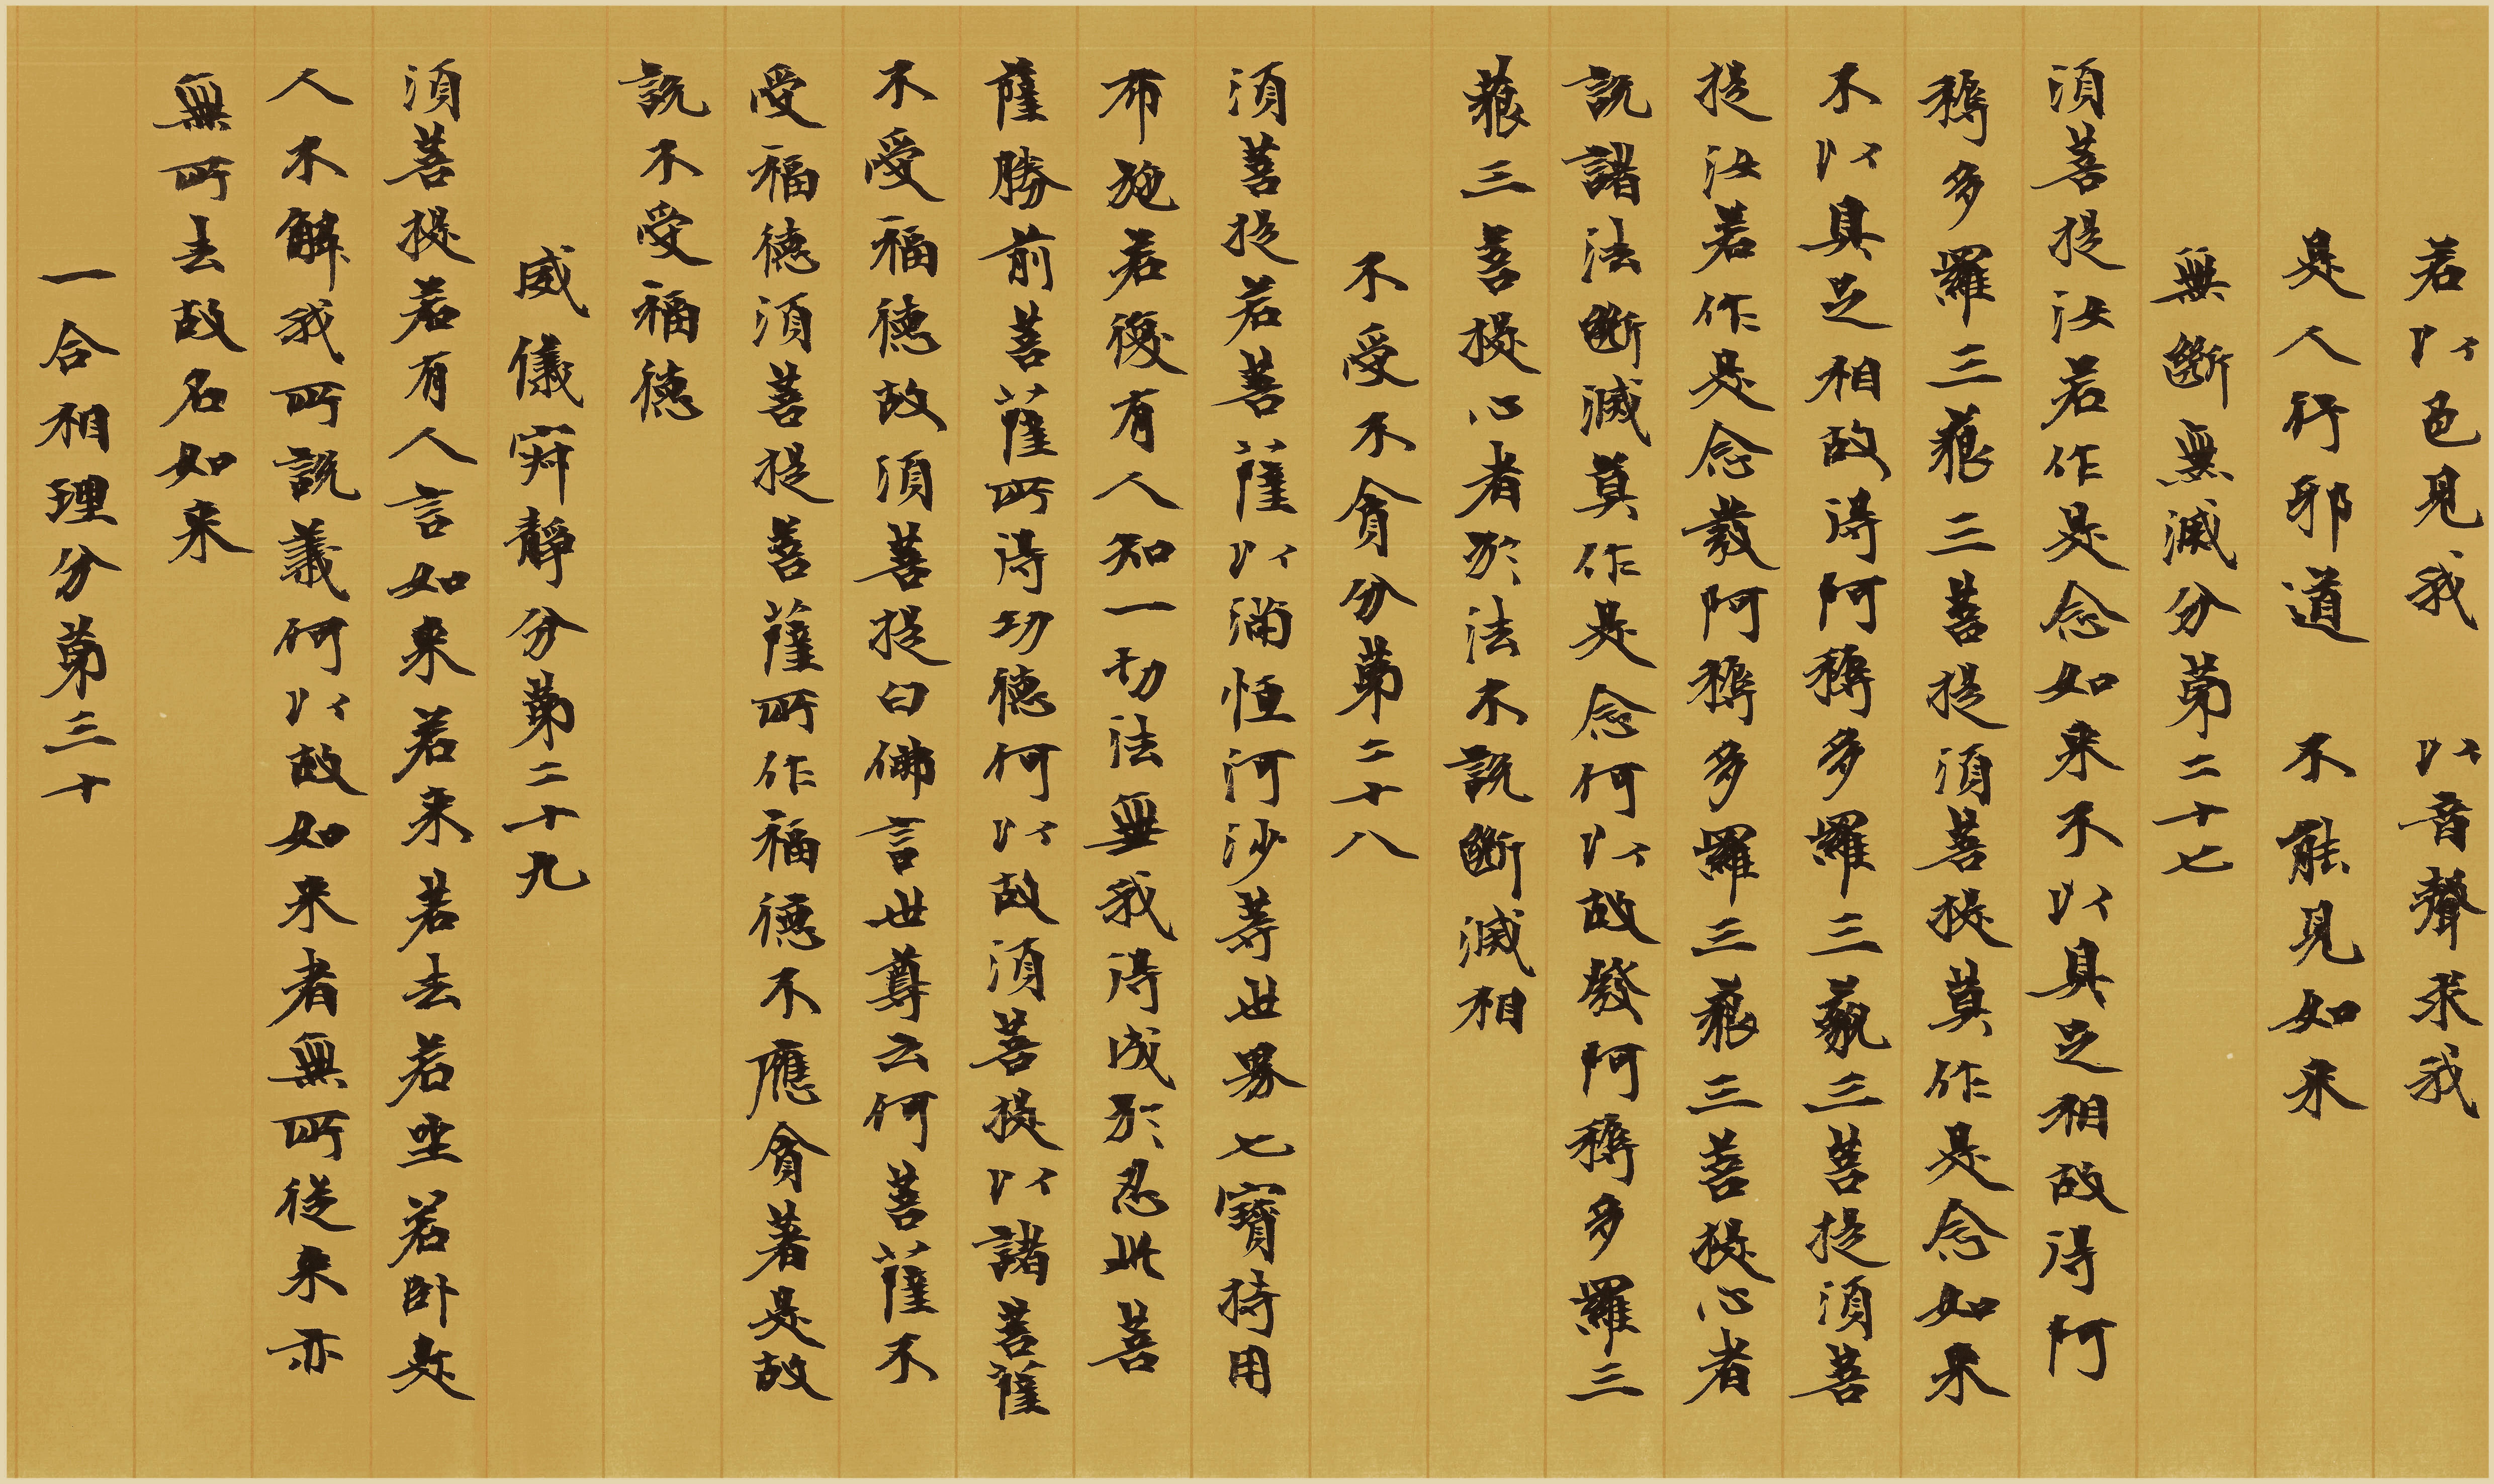 若以色見我 以音聲求我
是人行邪道 不能見如来
無斷無滅分第二十七
須菩提汝若作是念如来不以具足相故得阿
耨多羅三藐三菩提須菩提莫作是念如来
不以具足相故得阿耨多羅三藐三菩提須菩
提汝若作是念發阿耨多羅三藐三菩提心者
說諸法斷滅莫作是念何以故發阿耨多羅三
藐三菩提心者於法不說斷滅相
不受不貪分第二十八
須菩提若菩薩以滿恒河沙等世界七寶持用
布施若復有人知一切法無我得成於忍此菩
薩勝前菩薩所得功德何以故須菩提以諸菩薩
不受福德故須菩提白佛言世尊云何菩薩不
受福德須菩提菩薩所作福德不應貪著是故
說不受福德
威儀寂靜分第二十九
須菩提若有人言如来若来若去若坐若卧是
人不解我所說義何以故如来者無所從来亦
無所去故名如来
一合相理分第三十